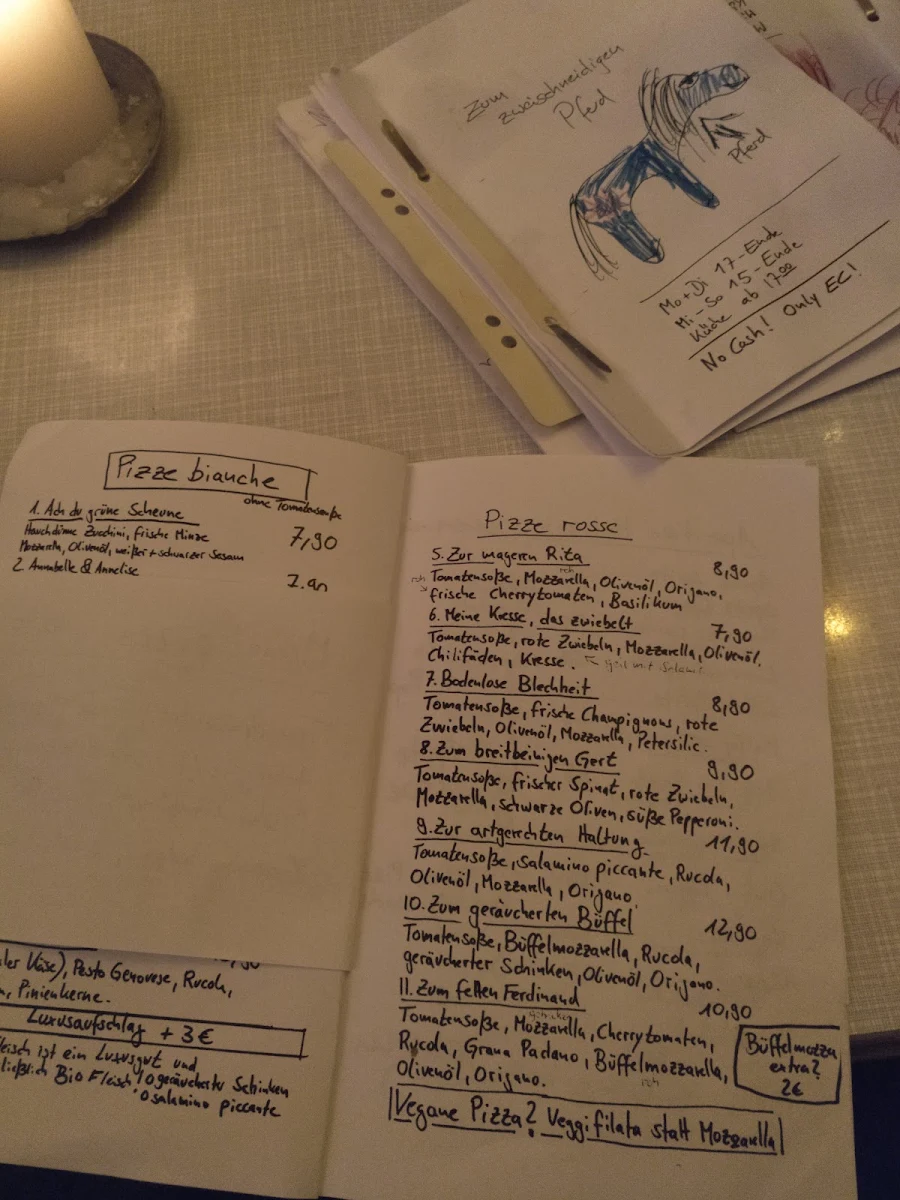 Zum
zweischneidigen
Pferd
Pferd
Mo+Di 17-Ende
Mi-So 15-Ende
Küche ab 17⁰⁰
No Cash! Only EC!
Pizze bianche
ohne Tomatensoße
1. Ach du grüne Scheune 7,90
Hauchdünne Zucchini, frische Minze
Mozzarella, Olivenöl, weißer + schwarzer Sesam
2. Annabelle & Annelise
Käse), Pesto Genovese, Rucola,
Pinienkerne.
Luxusaufschlag +3€
ist ein Luxusgut und
Bio Fleisch! o geräucherter Schinken
o salamino piccante
Pizze rosse
5. Zur mageren Rita 8,90
Tomatensoße, Mozzarella, Olivenöl, Origano,
frische Cherrytomaten, Basilikum
6. Meine Kresse, das zwiebelt 7,90
Tomatensoße, rote Zwiebeln, Mozzarella, Olivenöl.
Chilifäden, Kresse.
7. Bodenlose Blechheit 8,90
Tomatensoße, frische Champignons, rote
Zwiebeln, Olivenöl, Mozzarella, Petersilie.
8. Zum breitbeinigen Gert 9,90
Tomatensoße, frischer Spinat, rote Zwiebeln,
Mozzarella, schwarze Oliven, süße Pepperoni.
9. Zur artgerechten Haltung 11,90
Tomatensoße, salamino piccante, Rucola,
Olivenöl, Mozzarella, Origano.
10. Zum geräucherten Büffel 12,90
Tomatensoße, Büffelmozzarella, Rucola,
geräucherter Schinken, Olivenöl, Origano.
11. Zum fetten Ferdinand 10,90
Tomatensoße, Mozzarella, Cherrytomaten,
Rucola, Grana Padano, Büffelmozzarella,
Olivenöl, Origano.
Büffelmozza
extra?
2€
Vegane Pizza? Veggifilata statt Mozzarella